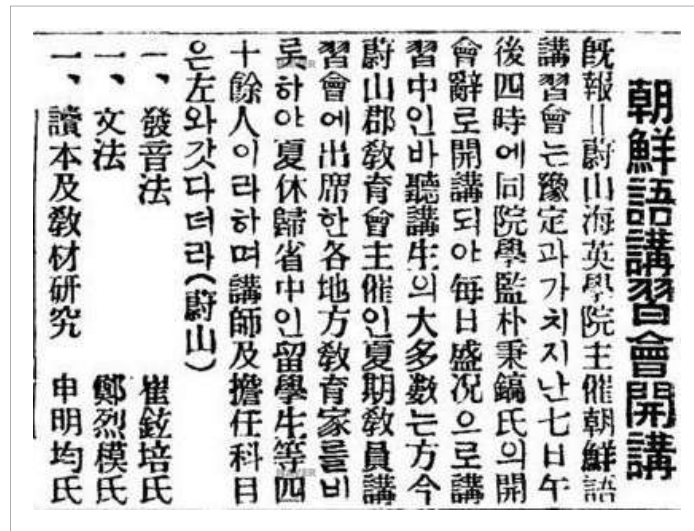 朝鮮語講習會開講
旣報＝蔚山海英學院主催朝鮮語
講習會는豫定과가치지난七日午
後四時에同院學監朴秉鎬氏의開
會辭로開講되야每日盛况으로講
習中인바聽講生의大多數는方今
蔚山郡敎育會主催인夏期敎員講
習會에出席한各地方敎育家를비
롯하야夏休歸省中인留學生等四
十餘人이라하며講師及擔任科目
은左와갓다더라(蔚山)
一、發音法 崔鉉培氏
一、文法 鄭烈模氏
一、讀本及敎材硏究 申明均氏